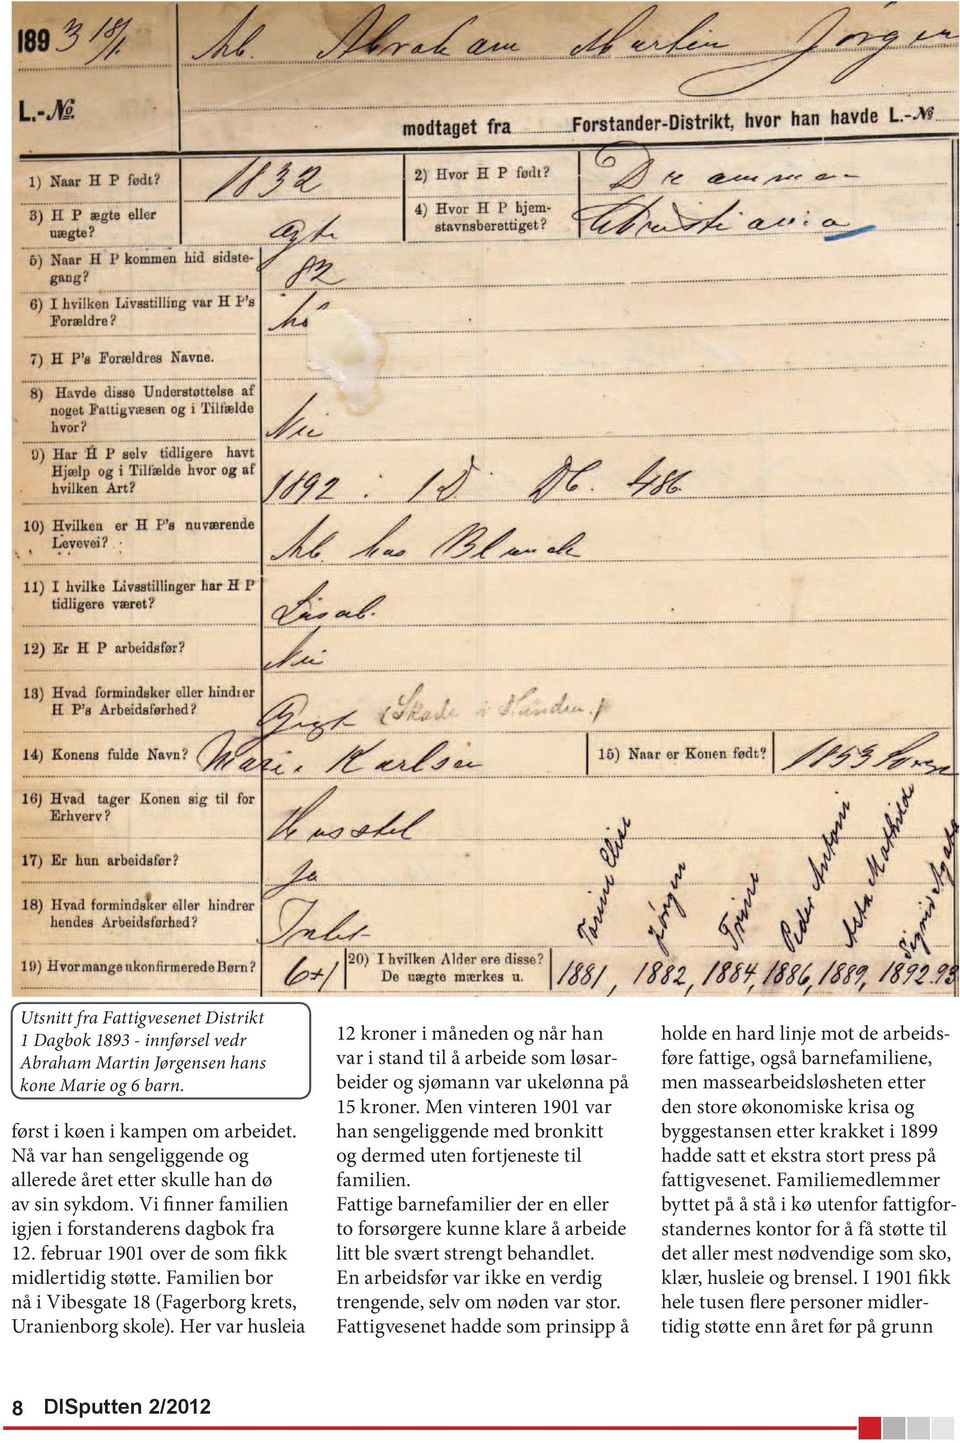 1893 18/1. Arb. Abraham Martin Jørgen
L.-№.
modtaget fra Forstander-Distrikt, hvor han havde L.-№
1) Naar H P født? 1832 2) Hvor H P født? Drammen
3) H P ægte eller
uægte? Ægte 4) Hvor H P hjem-
stavnsberettiget? Christiania
5) Naar H P kommen hid sidste-
gang? 82
6) I hvilken Livsstilling var H P's
Forældre?
7) H P's Forældres Navne.
8) Havde disse Understøttelse af
noget Fattigvæsen og i Tilfælde
hvor? Nei
9) Har H P selv tidligere havt
Hjælp og i Tilfælde hvor og af
hvilken Art? 1892 i 1 D Db. 486.
10) Hvilken er H P's nuværende
Levevei? Arb. hos Blunck
11) I hvilke Livsstillinger har H P
tidligere været? Løsarb.
12) Er H P arbeidsfør? Nei
13) Hvad formindsker eller hindrer
H P's Arbeidsførhed? Gigt (Skade i Haanden.)
14) Konens fulde Navn? Marie Karlsen 15) Naar er Konen født? 1853
16) Hvad tager Konen sig til for
Erhverv? Husstel
17) Er hun arbeidsfør? Ja
18) Hvad formindsker eller hindrer
hendes Arbeidsførhed? Intet
19) Hvor mange ukonfirmerede Børn? 6+1 20) I hvilken Alder ere disse?
De uægte mærkes u.
Torine Elise Jørgen Trine Peder Antoni Asta Mathilde Sigrid Agata
1881, 1882, 1884, 1886, 1889, 1892. 93
Utsnitt fra Fattigvesenet Distrikt
1 Dagbok 1893 - innførsel vedr
Abraham Martin Jørgensen hans
kone Marie og 6 barn.
først i køen i kampen om arbeidet.
Nå var han sengeliggende og
allerede året etter skulle han dø
av sin sykdom. Vi finner familien
igjen i forstanderens dagbok fra
12. februar 1901 over de som fikk
midlertidig støtte. Familien bor
nå i Vibesgate 18 (Fagerborg krets,
Uranienborg skole). Her var husleia
12 kroner i måneden og når han
var i stand til å arbeide som løsar-
beider og sjømann var ukelønna på
15 kroner. Men vinteren 1901 var
han sengeliggende med bronkitt
og dermed uten fortjeneste til
familien.
Fattige barnefamilier der en eller
to forsørgere kunne klare å arbeide
litt ble svært strengt behandlet.
En arbeidsfør var ikke en verdig
trengende, selv om nøden var stor.
Fattigvesenet hadde som prinsipp å
holde en hard linje mot de arbeids-
føre fattige, også barnefamiliene,
men massearbeidsløsheten etter
den store økonomiske krisa og
byggestansen etter krakket i 1899
hadde satt et ekstra stort press på
fattigvesenet. Familiemedlemmer
byttet på å stå i kø utenfor fattigfor-
standernes kontor for å få støtte til
det aller mest nødvendige som sko,
klær, husleie og brensel. I 1901 fikk
hele tusen flere personer midler-
tidig støtte enn året før på grunn
8 DISputten 2/2012